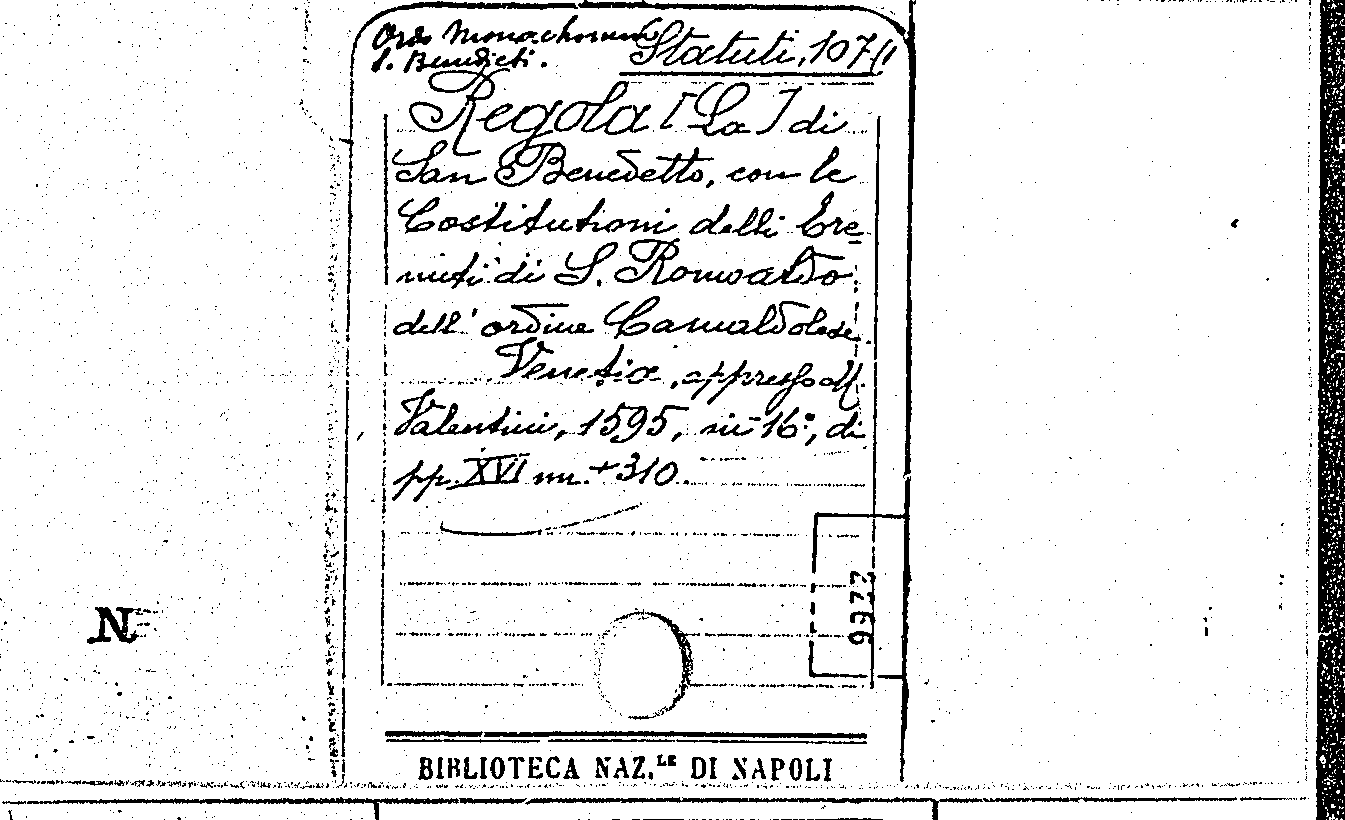 Ordo Monachorum
S. Benedicti.
Statuti, 107
Regola [La] di
San Benedetto, con le
Costitutioni delli Ere-
miti di S. Romoaldo
dell'ordine Camaldolese.
Venetia, appresso M.
Valentini, 1595, in 16°, di
pp. XVI nn. + 310.
9977
N
BIBLIOTECA NAZ.LE DI NAPOLI